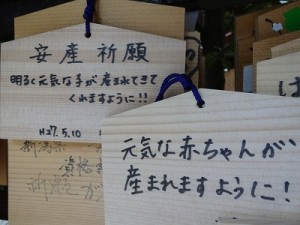 安産祈願
明るく元気な子が産まれてきて
くれますように!!
H27.5.10
元気な赤ちゃんが
産まれますように!
新潟県
資格
祈願 が
は